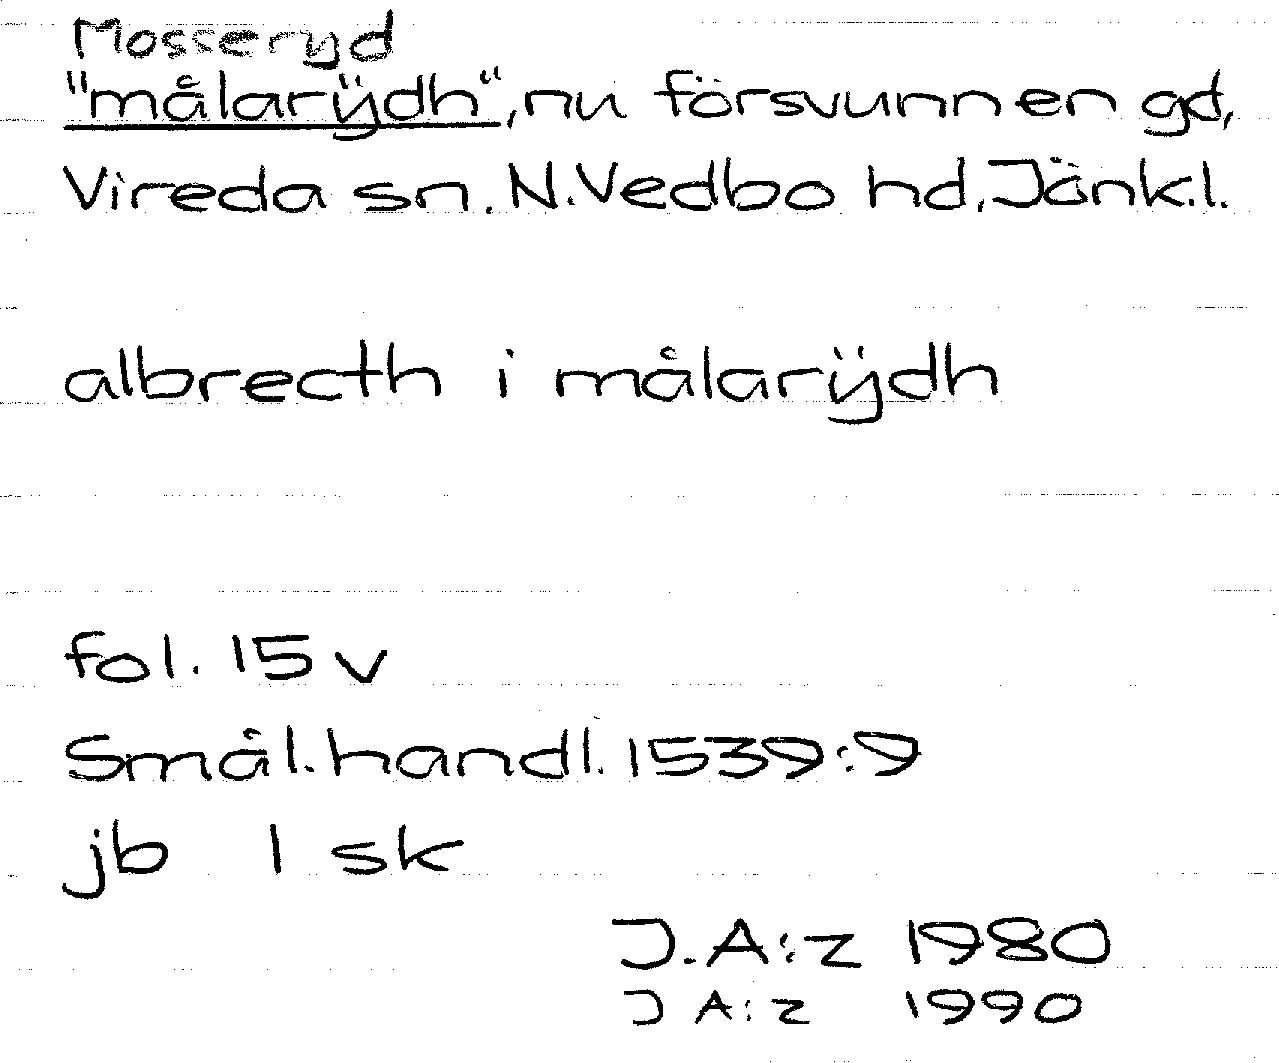 Mosseryd
"målarÿdh", nu försvunnen gd,
Vireda sn. N.Vedbo hd, Jönk.l.
albrecth i målarÿdh
fol. 15 v
Smål.handl. 1539:9
jb 1 sk
J.A:z 1980
J A:z 1990